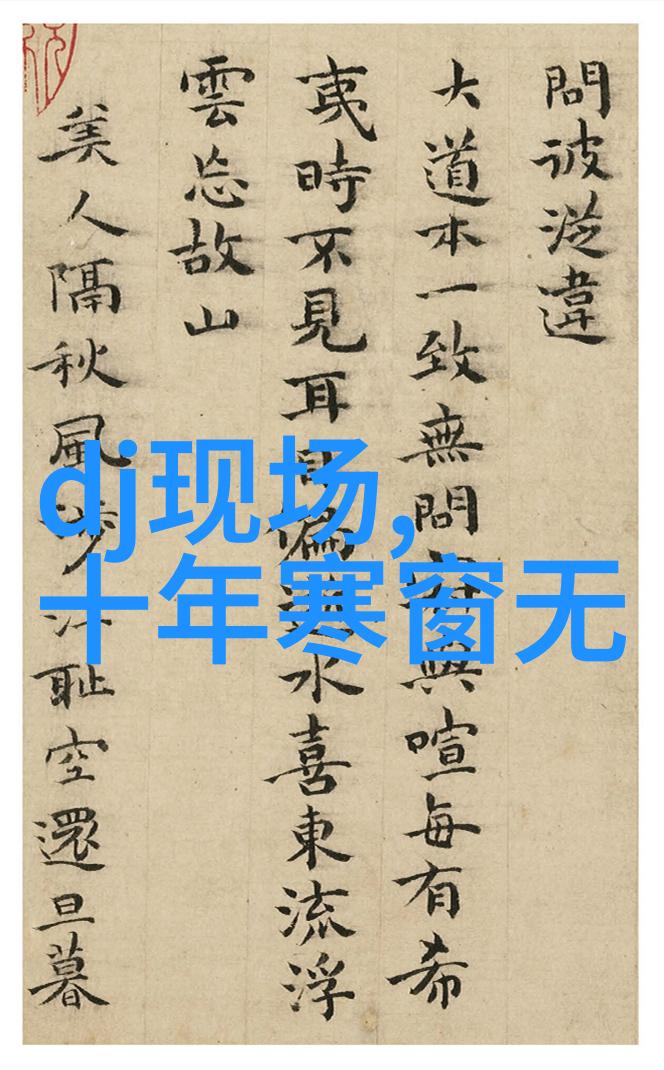 問彼從違
大道本一致無問與喧每有希
夷時不見耳目偏水喜東流浮
雲忘故山
美人隔秋風涉江耻空還旦暮
dj现场,
十年寒窗无